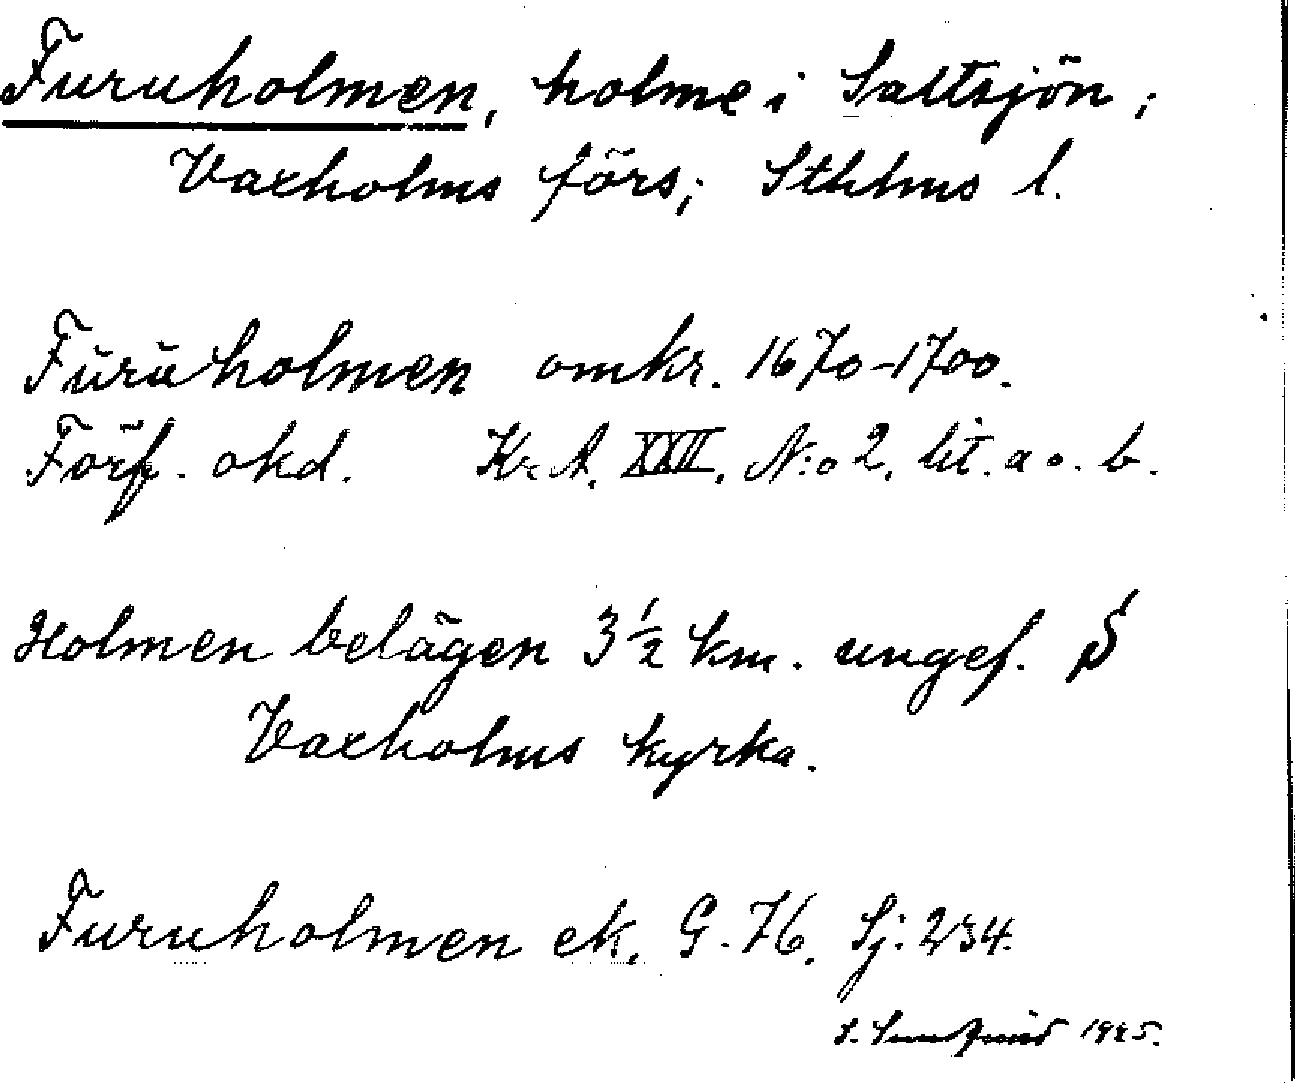 Furuholmen, holme i Saltsjön;
Vaxholms förs; Sthlms l.
Fŭrŭholmen omkr. 1670-1700.
Förf. okd. Kr. A. XXII. N:o 2. lit. a o. b.
Holmen belägen 3 1/2 km. ungef. S
Vaxholms kyrka.
Furuholmen ek. G. 76. Sj: 234.
1925.